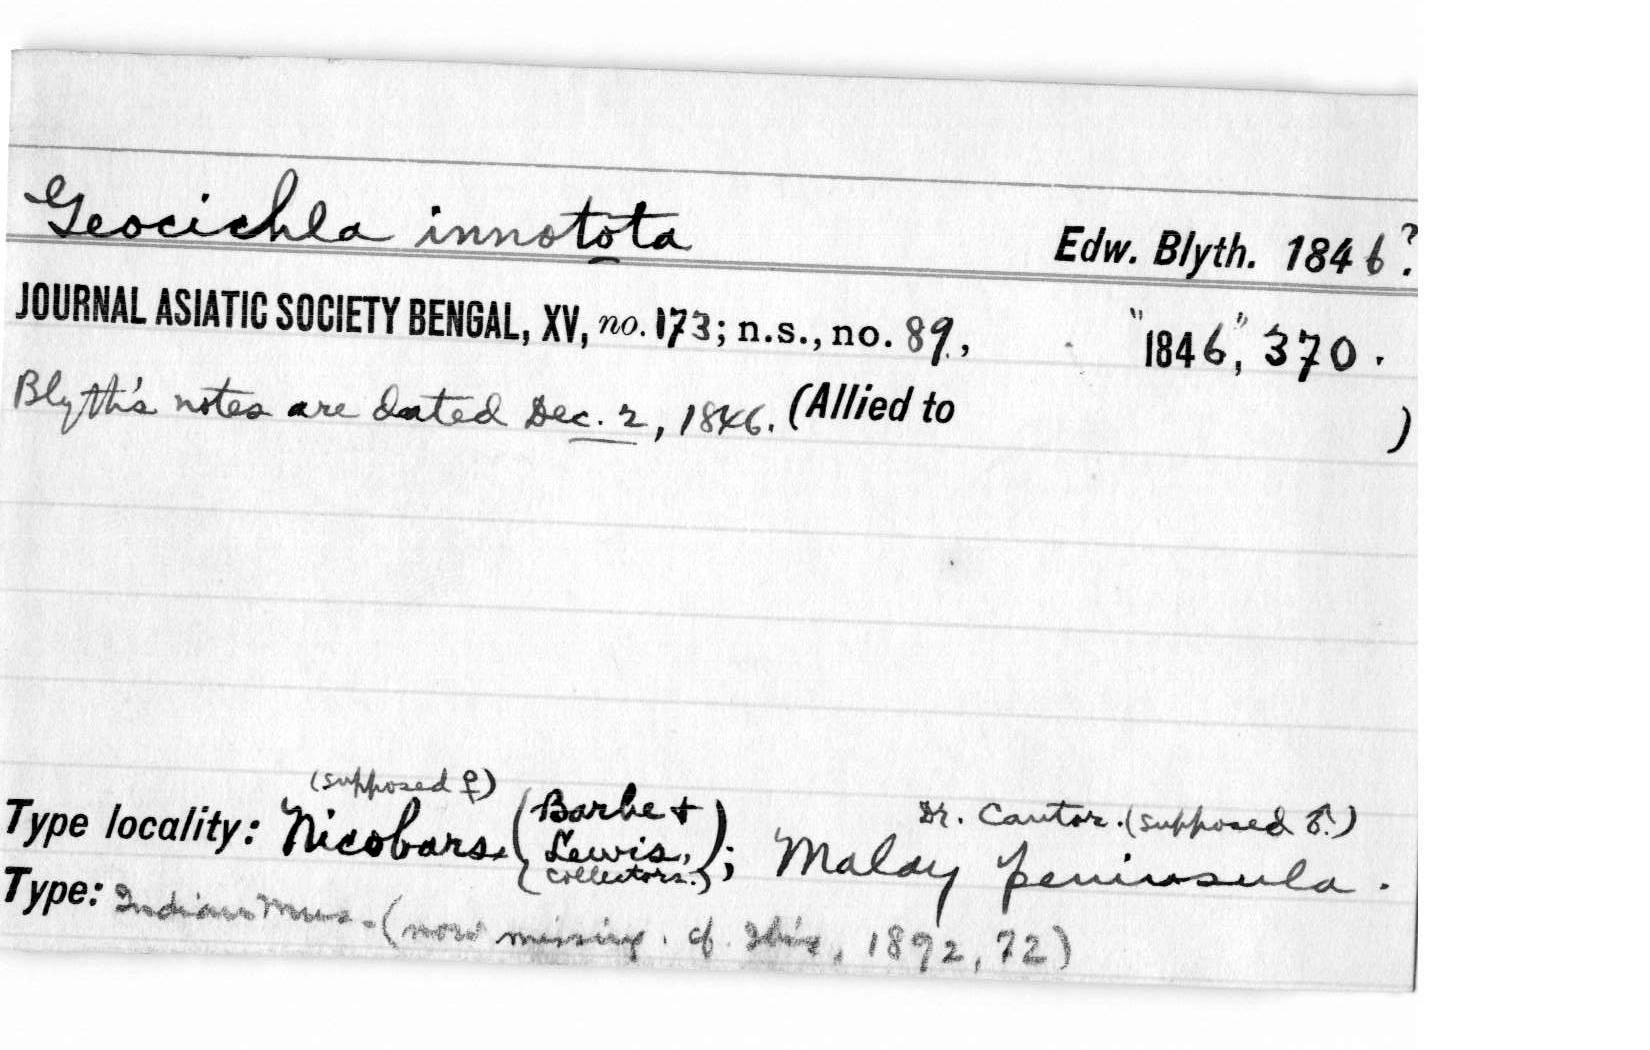 Geocichla innotota Edw. Blyth. 1846?.
JOURNAL ASIATIC SOCIETY BENGAL, XV, no. 173; n.s., no. 89., "1846", 370.
Blyth's notes are dated Dec. 2, 1846. (Allied to )
(supposed ♀) Dr. Cantor. (supposed ♂.)
Type locality: Nicobars. (Barbe + Lewis, collectors.); Malay peninsula.
Type: Indian Mus. (now missing. cf. Ibis, 1892, 72)